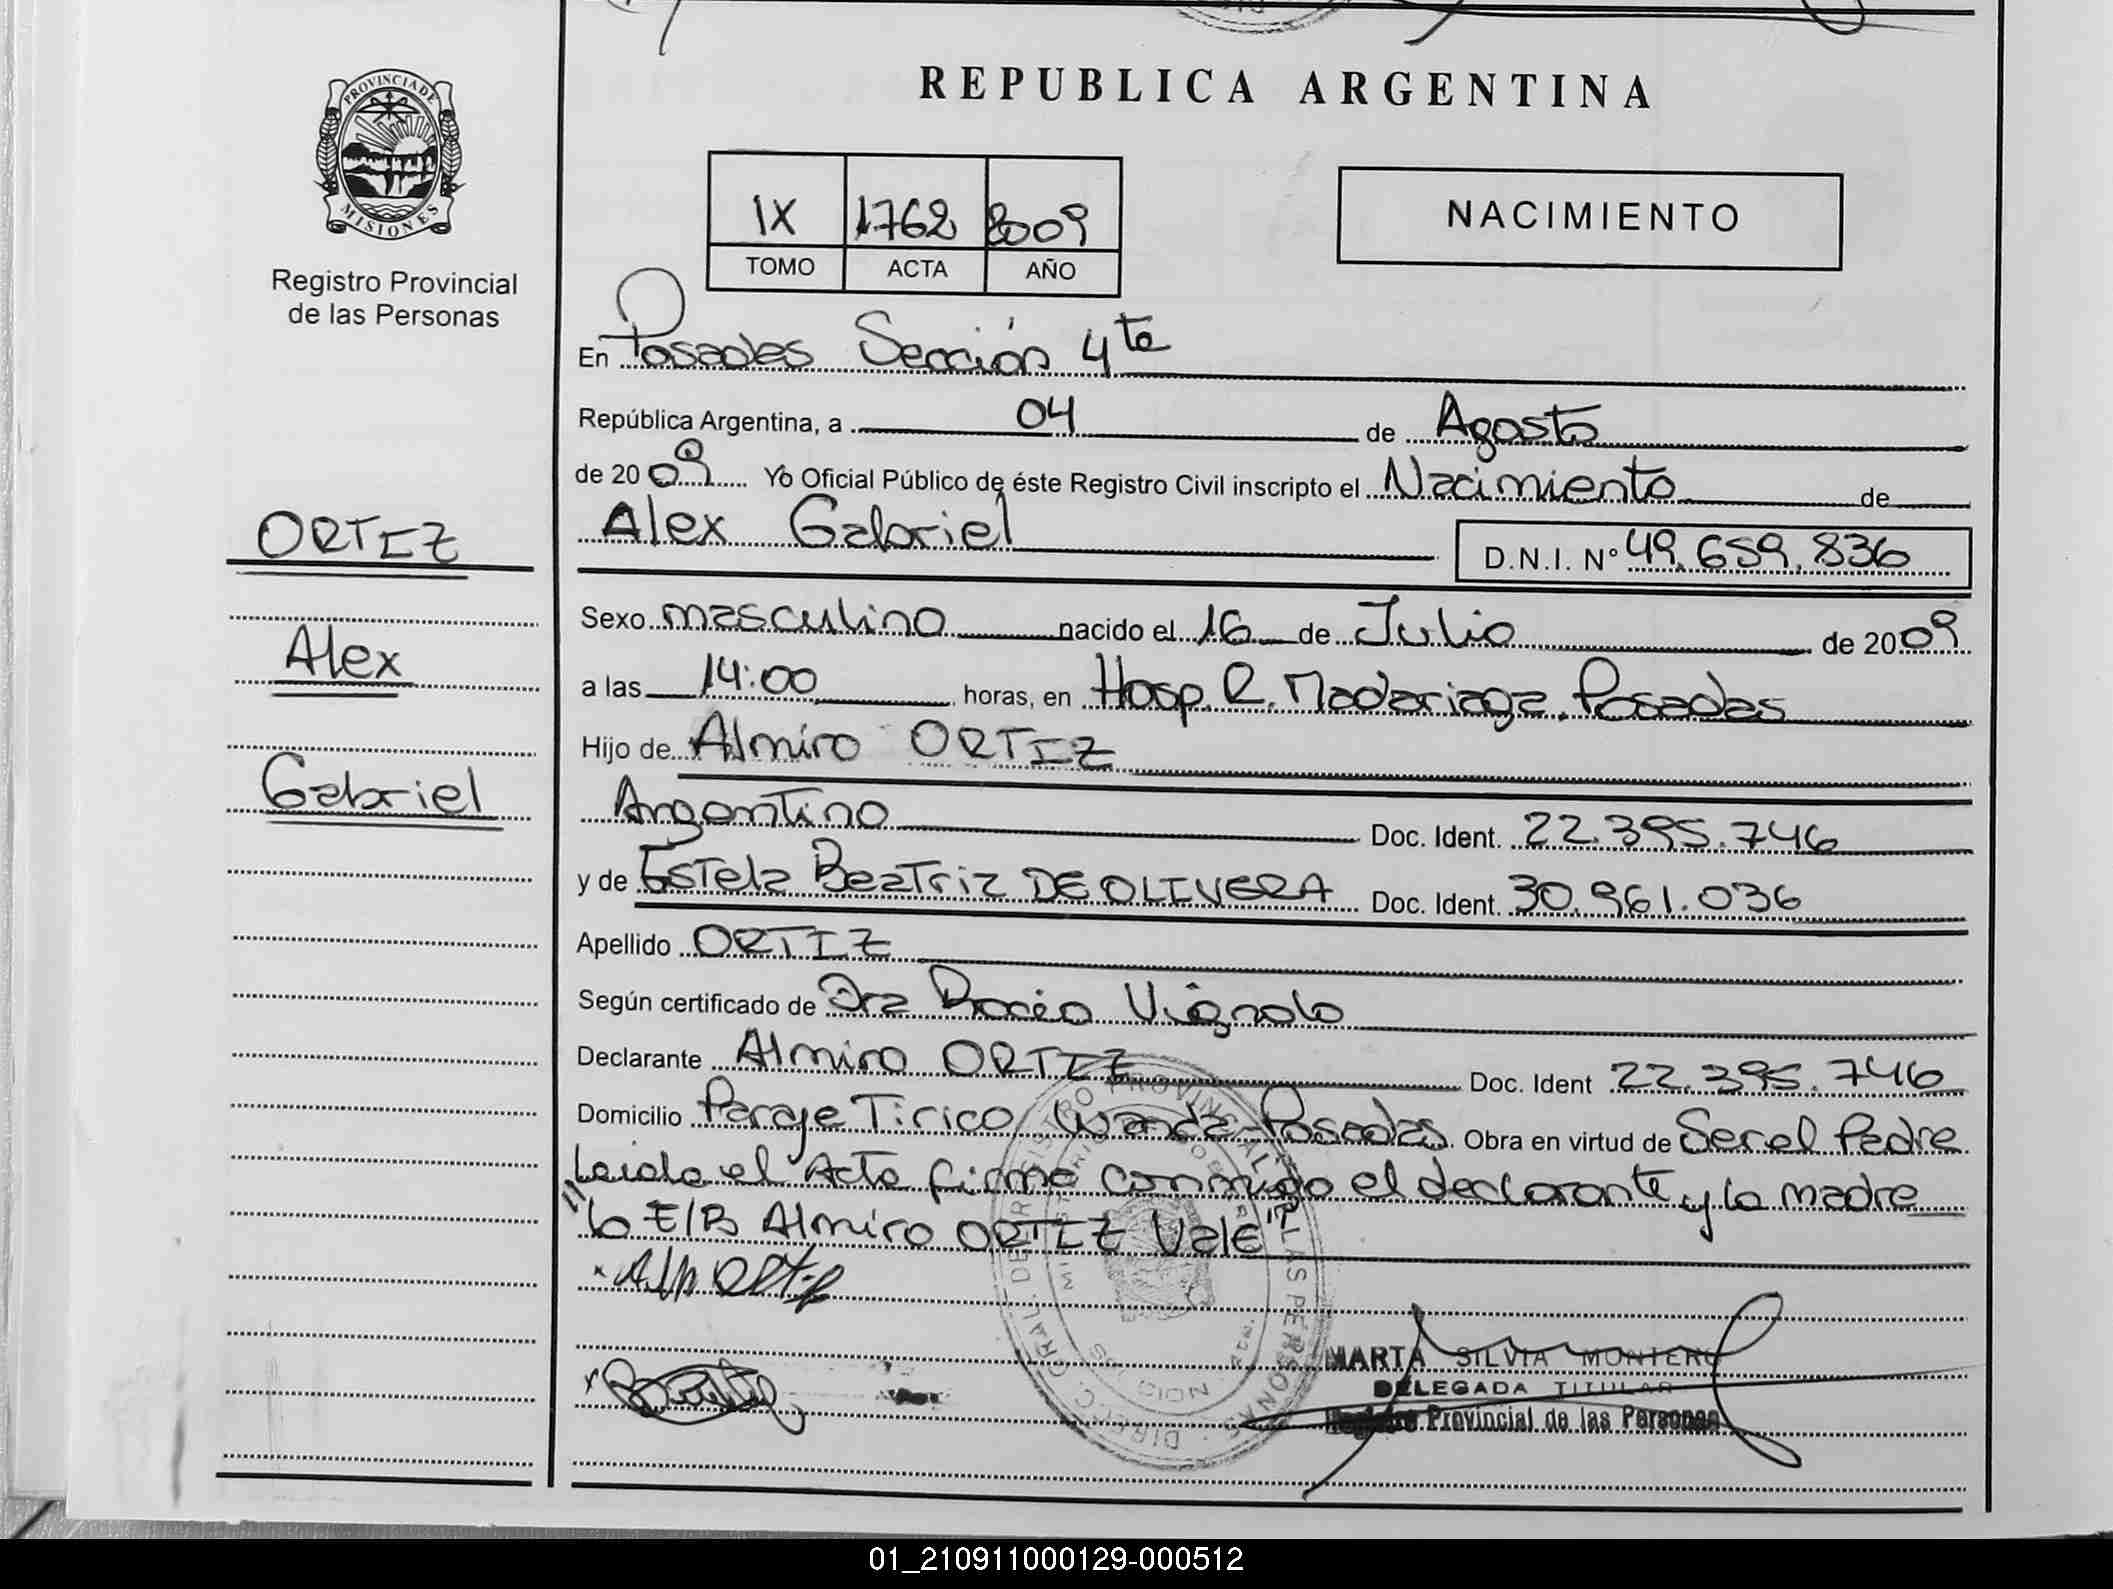 REPUBLICA ARGENTINA
PROVINCIA DE
MISIONES
Registro Provincial
de las Personas
IX 1762 2009
TOMO ACTA AÑO
NACIMIENTO
En Posadas Sección 4ta
República Argentina, a 04 de Agosto
de 2009 Yo Oficial Público de éste Registro Civil inscripto el Nacimiento de
Alex Gabriel D.N.I. Nº 49.659.836
ORTIZ
Alex
Gabriel
Sexo masculino nacido el 16 de Julio de 2009
a las 14:00 horas, en Hosp. R. Madariaga. Posadas
Hijo de Almiro ORTIZ
Argentino Doc. Ident. 22.395.746
y de Estela Beatriz DE OLIVERA Doc. Ident. 30.961.036
Apellido ORTIZ
Según certificado de Dra Rocío Vignolo
Declarante Almiro ORTIZ Doc. Ident 22.395.746
Domicilio Paraje Tirico Wanda-Posadas. Obra en virtud de Ser el Padre
Leida el Acta firma conmigo el declarante y la madre
"lo E/B Almiro ORTIZ Vale"
MARTA SILVIA MONTERO
DELEGADA TITULAR
Registro Provincial de las Personas
01_210911000129-000512